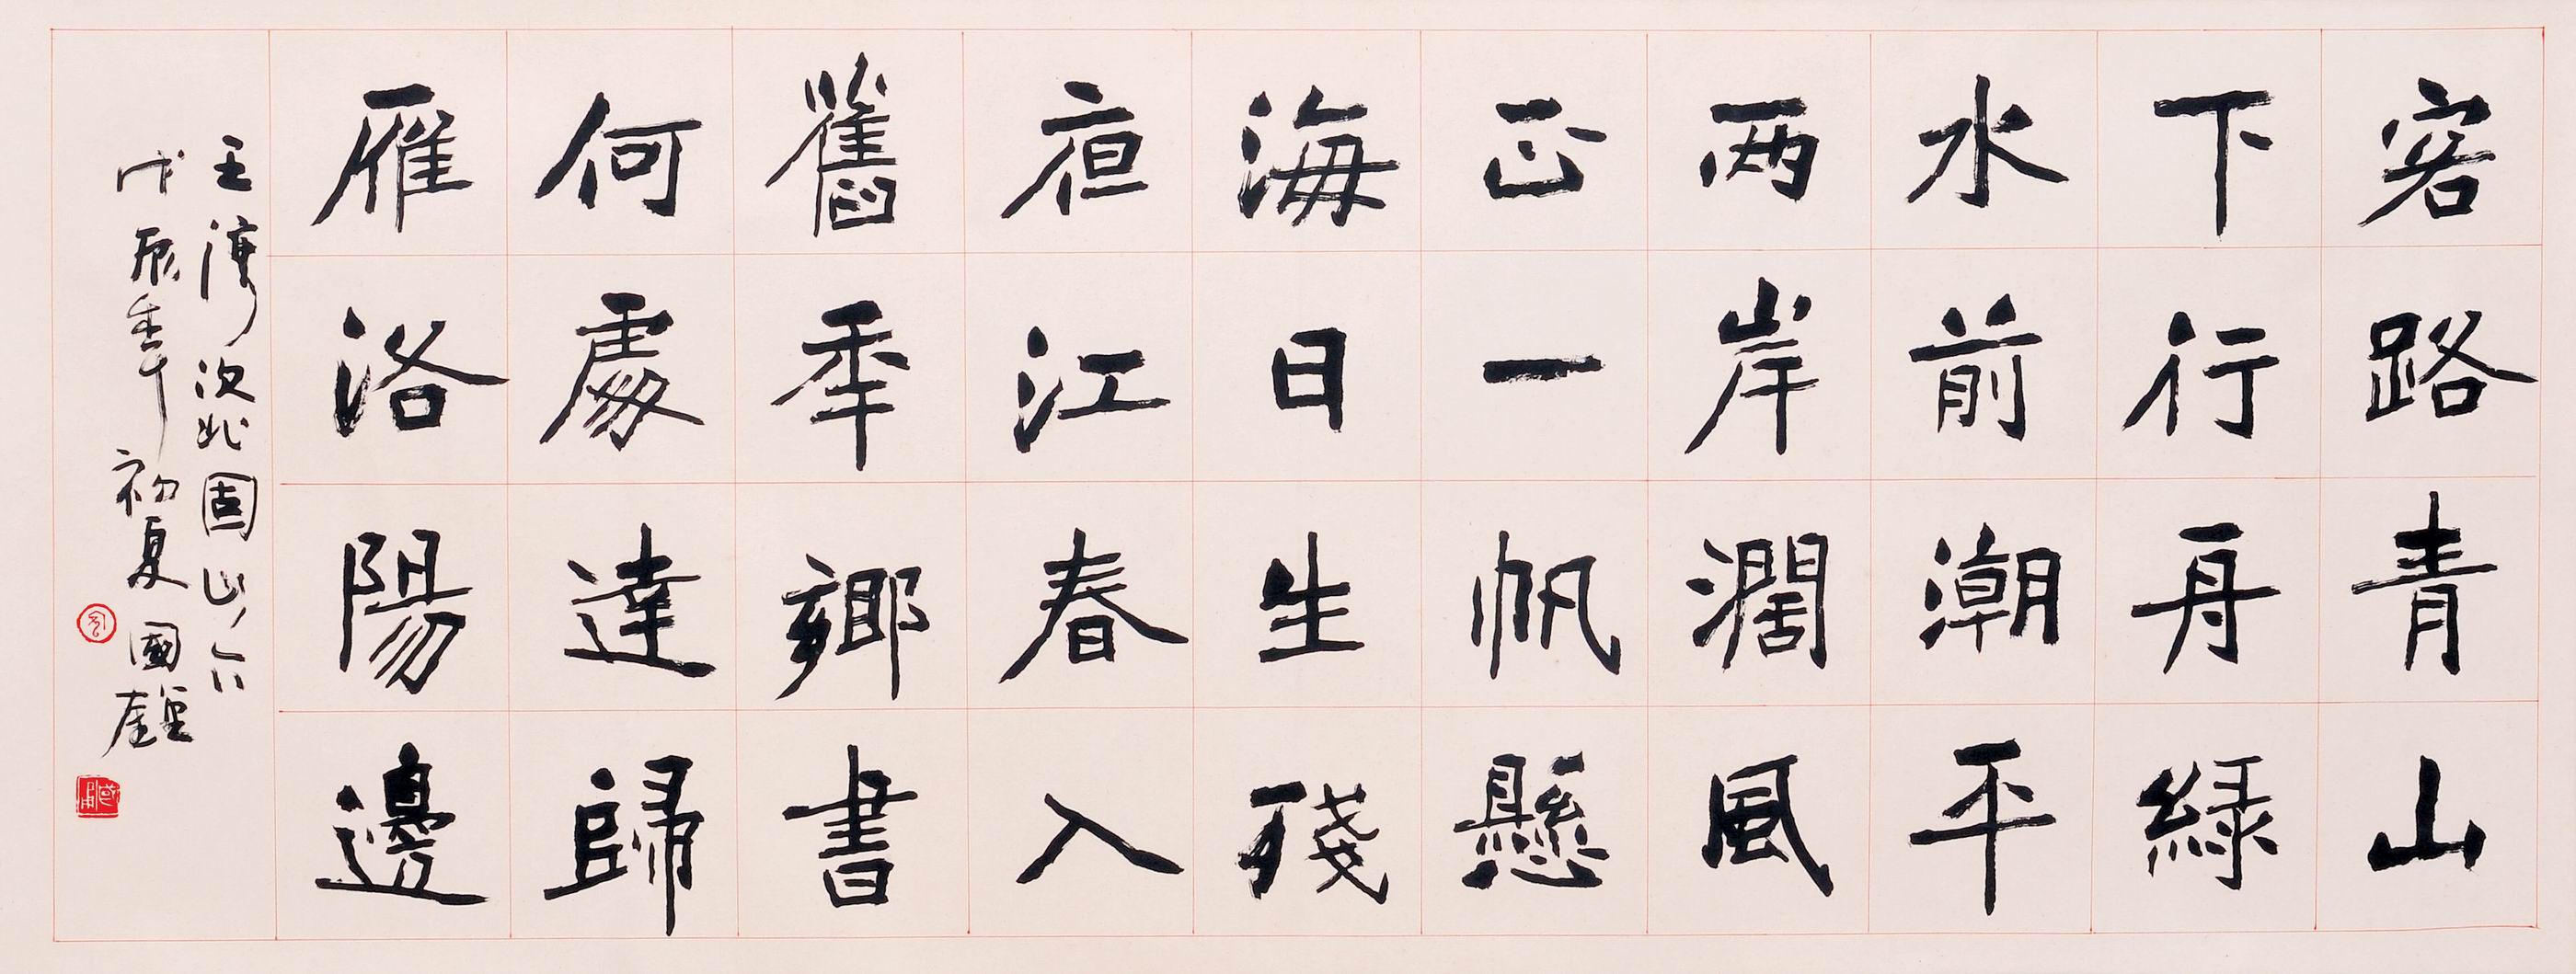 客路青山
下行舟綠
水前潮平
两岸濶風
正一帆懸
海日生殘
夜江春入
舊秊鄉書
何處達歸
雁洛陽邊
王灣次北固山下
戊辰年初夏國